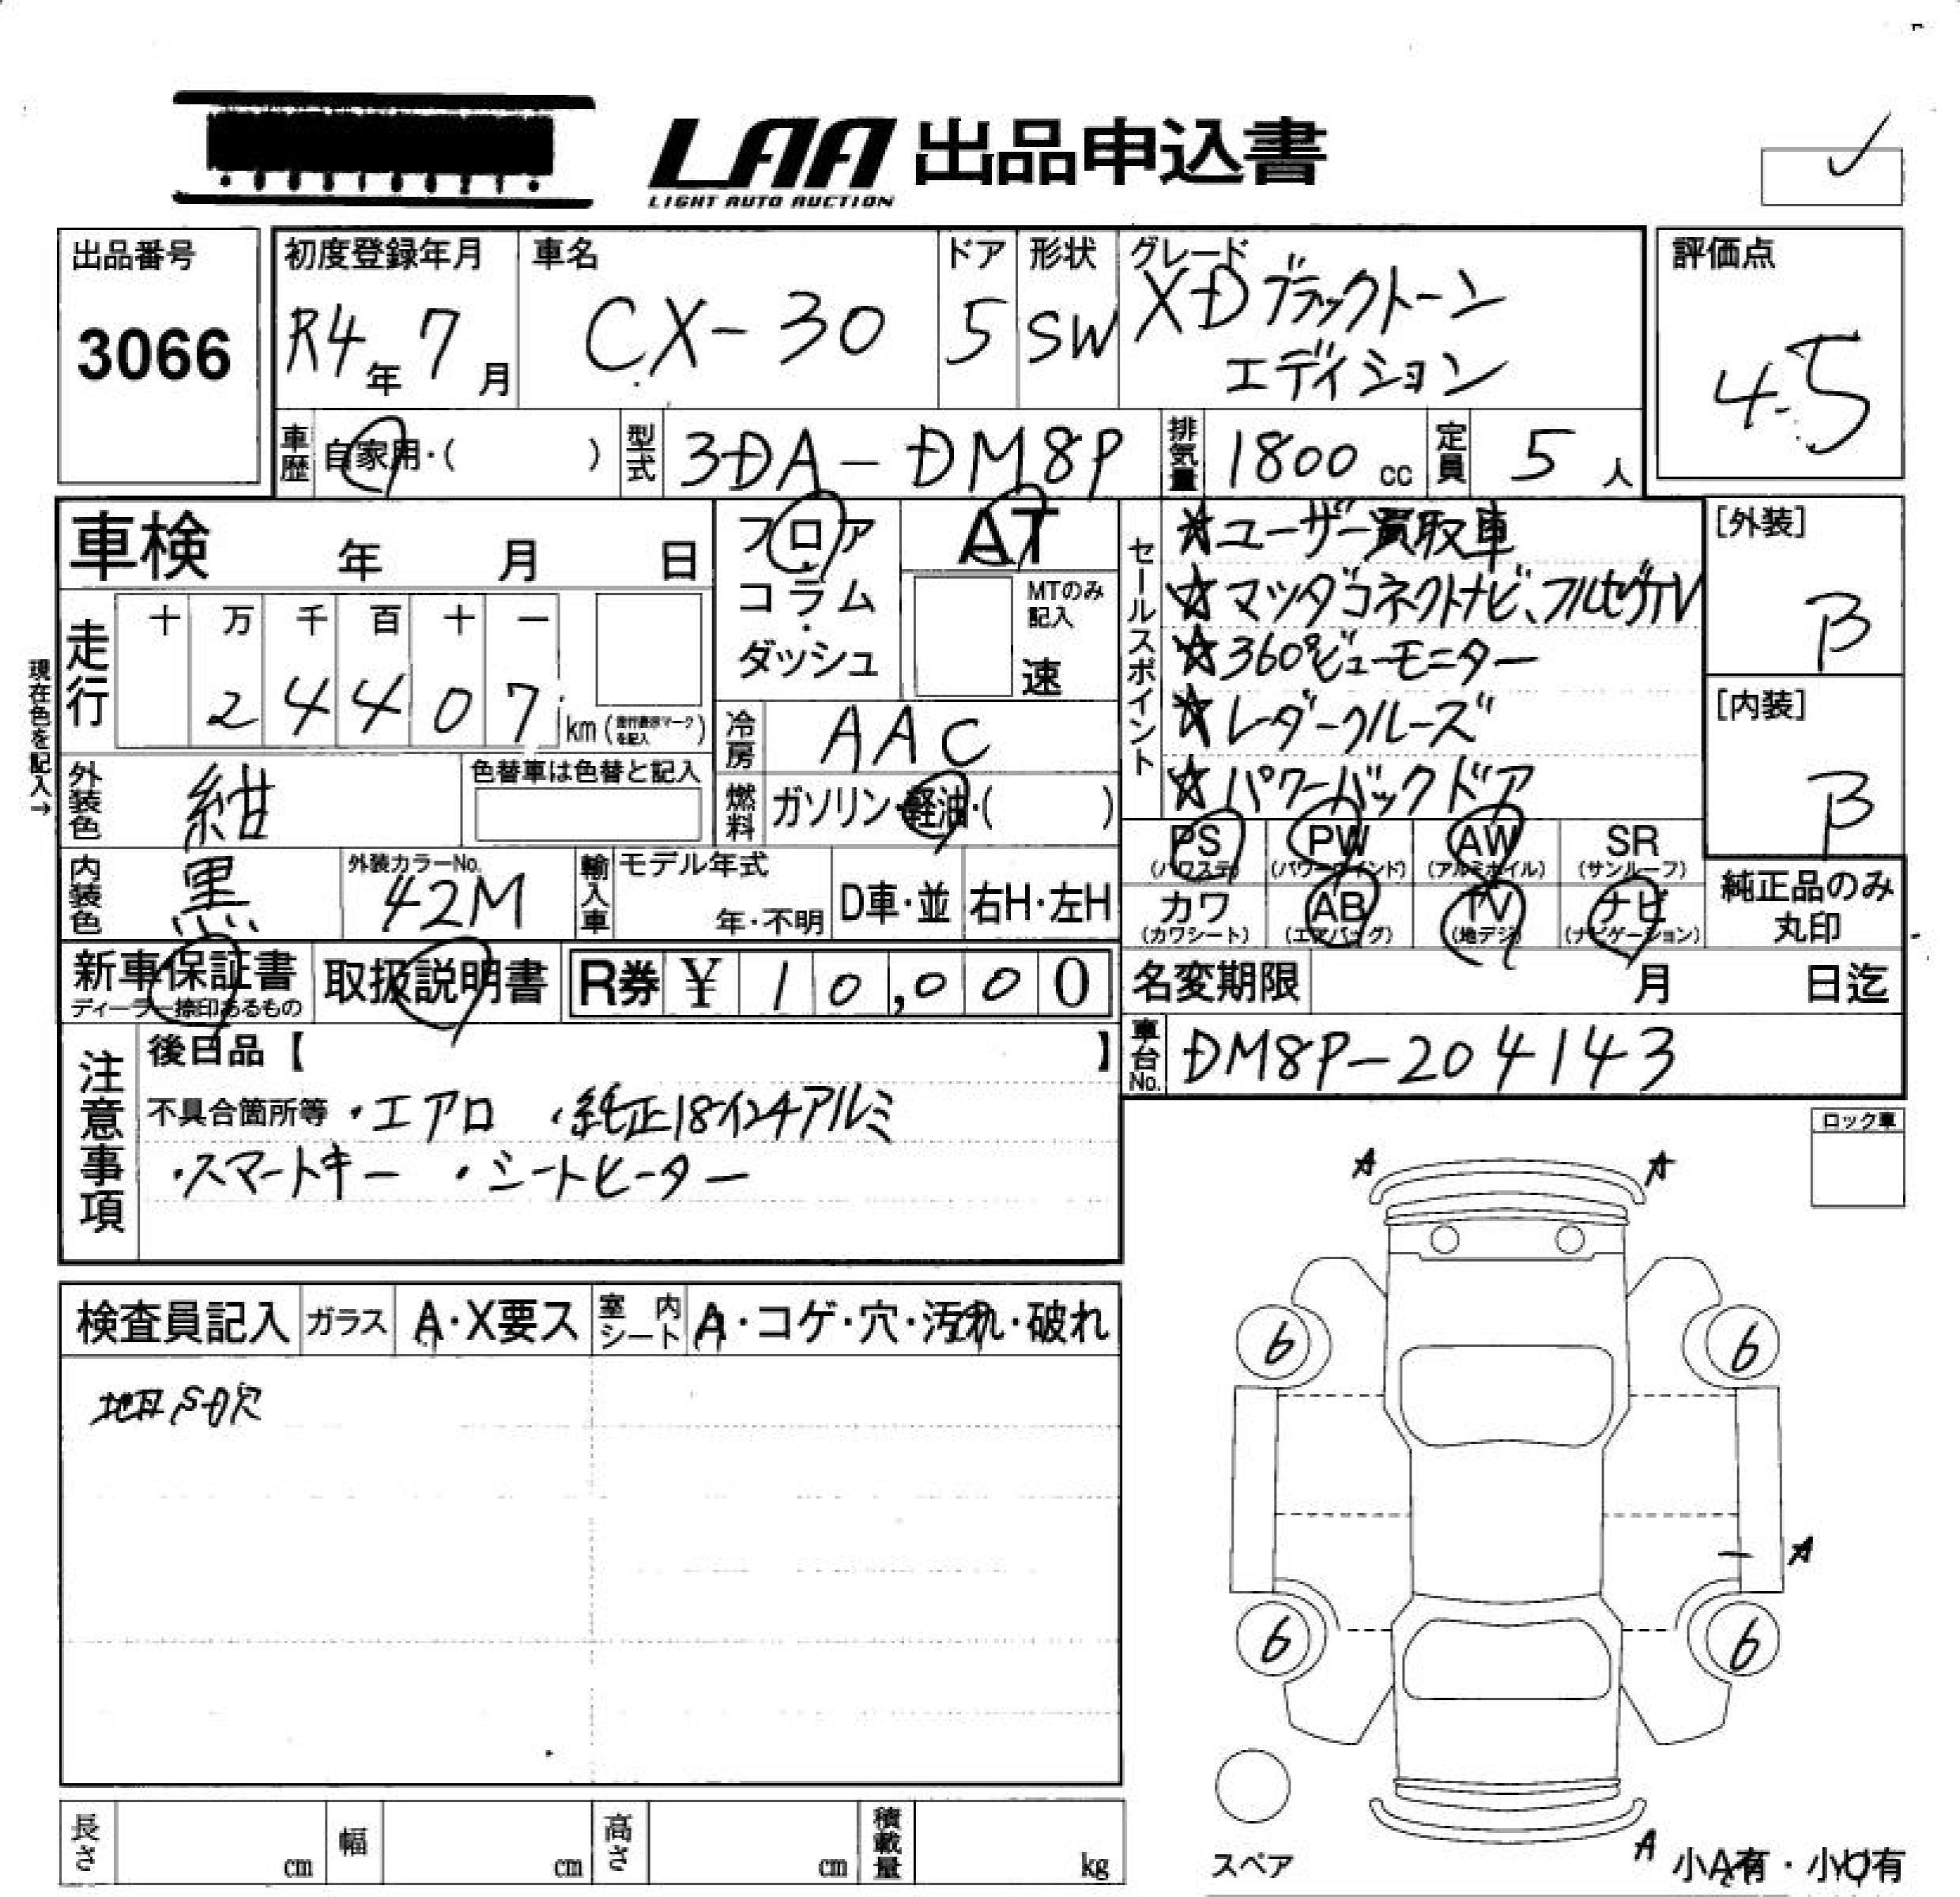 LAA 出品申込書
LIGHT AUTO AUCTION
出品番号
3066
初度登録年月
R4年7月
車名
CX-30
ドア
5
形状
SW
グレード
XDブラックトーン
エディション
評価点
4.5
車歴
自家用・( )
型式
3DA-DM8P
排気量
1800cc
定員
5人
車検 年 月 日
フロア
コラム
ダッシュ
AT
MTのみ
記入
速
セールスポイント
☆ユーザー買取車
☆マツダコネクトナビ、フルセグTV
☆360°ビューモニター
☆レダークルーズ
☆パワーバックドア
[外装]
B
[内装]
B
現在色を記入→
走行
十 万 千 百 十 一
2 4 4 0 7
km (走行表示マークを記入)
冷房
AAC
外装色
紺
色替車は色替と記入
燃料
ガソリン・軽油・( )
PS PW AW SR
(パワステ) (パワーウインド) (アルミホイル) (サンルーフ)
カワ AB TV ナビ
(カワシート) (エアバッグ) (地デジ) (ナビゲーション)
純正品のみ
丸印
内装色
黒
外装カラーNo.
42M
輸入車
モデル年式
年・不明
D車・並
右H・左H
新車保証書
ディーラー捺印あるもの
取扱説明書
R券 ¥ 10,000
名変期限 月 日迄
車台No.
DM8P-204143
注意事項
後日品【 】
不具合箇所等 ・エアロ ・純正18インチアルミ
・スマートキー ・シートヒーター
ロック車
A A
検査員記入
ガラス
A・X要ス
室内
シート
A・コゲ・穴・汚れ・破れ
6 6
A
6 6
長さ cm
幅 cm
高さ cm
積載量 kg
スペア
A
小A有・小U有